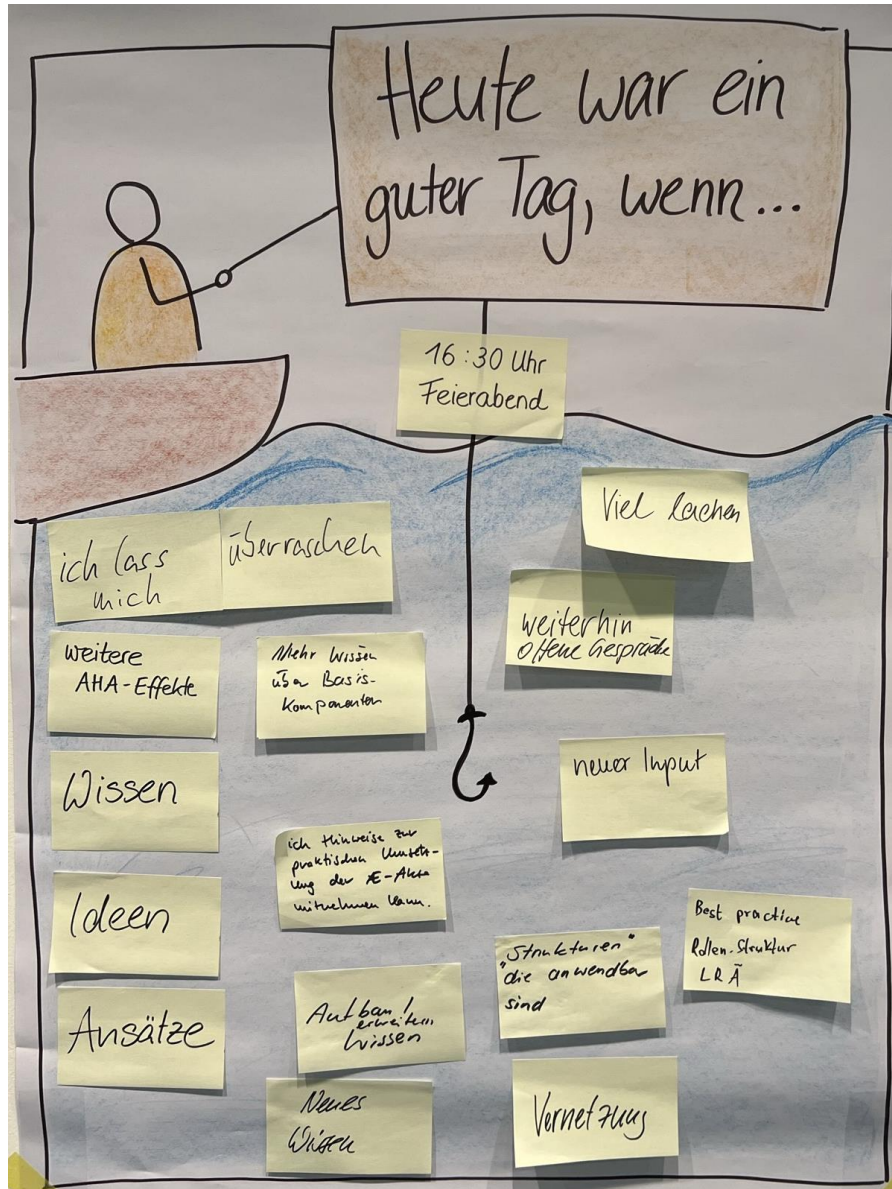 Heute war ein
guter Tag, wenn...
16:30 Uhr
Feierabend
Viel lachen
ich lass
mich
überraschen
weiterhin
offene Gespräche
weitere
AHA-Effekte
Mehr Wissen
über Basis-
Komponenten
neuer Input
Wissen
ich Hinweise zur
praktischen Umsetz-
ung der E-Akte
mitnehmen kann.
Ideen
Best practice
Rollen-Struktur
LRÄ
"Strukturen"
die anwendbar
sind
Ansätze
Aufbau/
erweitern
Wissen
Neues
Wissen
Vernetzung